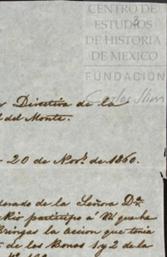 CENTRO DE
ESTUDIOS
DE HISTORIA
DE MÉXICO
FUNDACIÓN
Carlos Slim
Directiva de la
del Monte.
20 de Nov.e de 1860.
de la Señora Dª
participo á
la accion que tenia
de los Bonos 1 y 2 de la